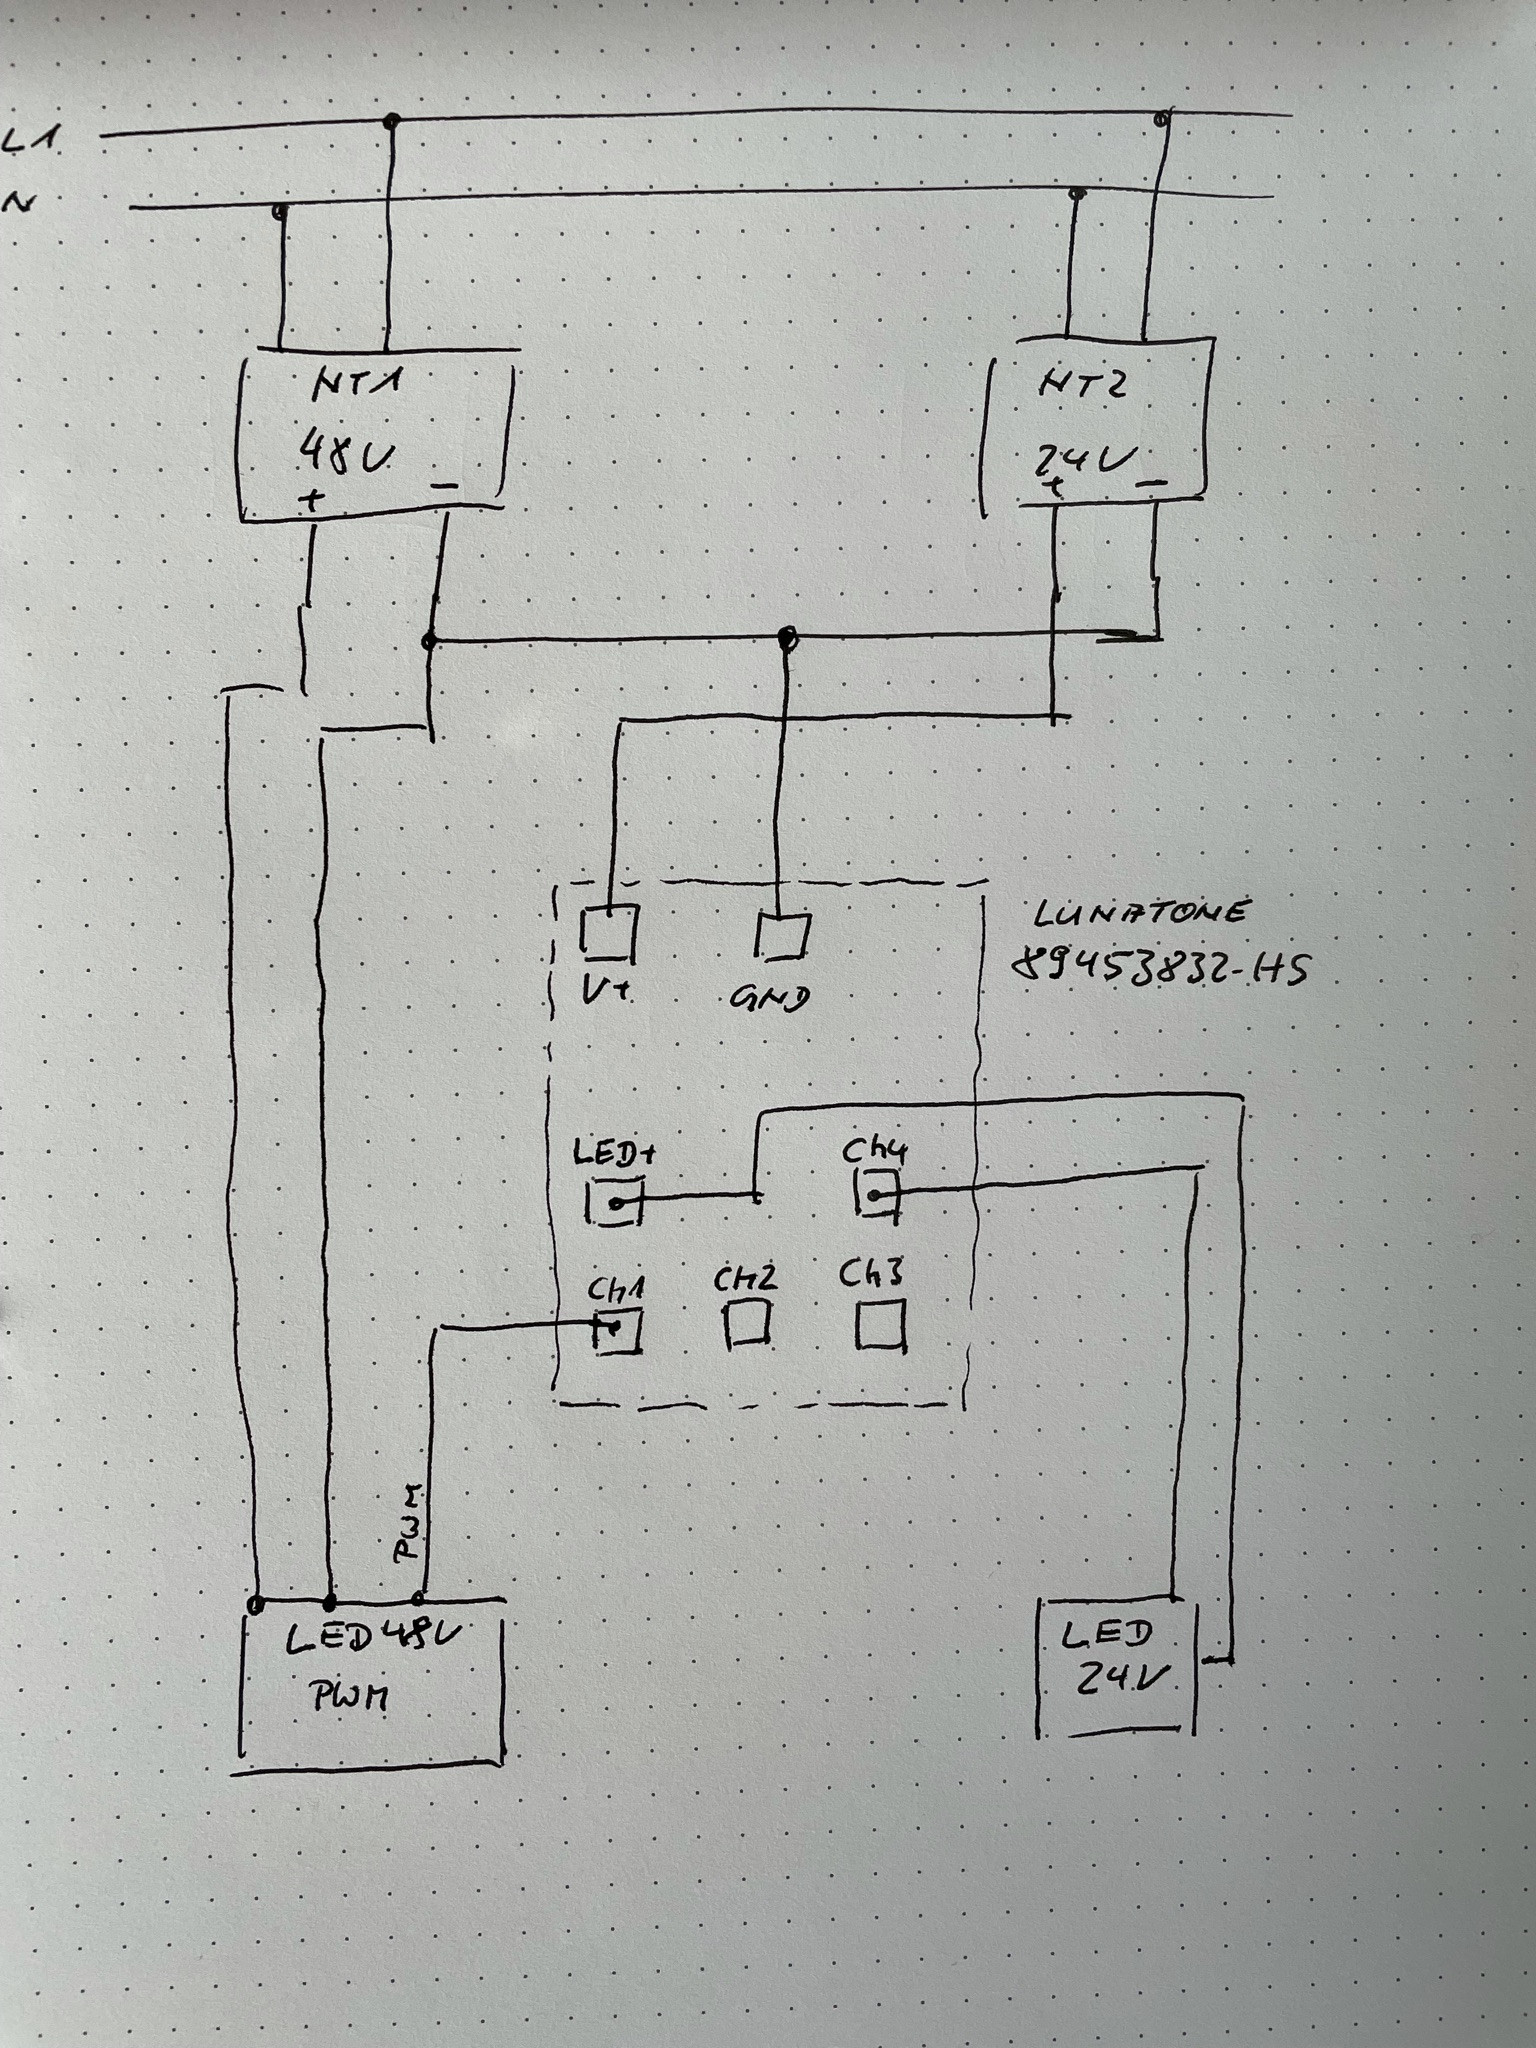 L1
N
NT1
48V
+ -
NT2
24V
+ -
LUNATONE
89453832-HS
V+
GND
LED+
Ch4
Ch1
Ch2
Ch3
PWM
LED 48V
PWM
LED
24V